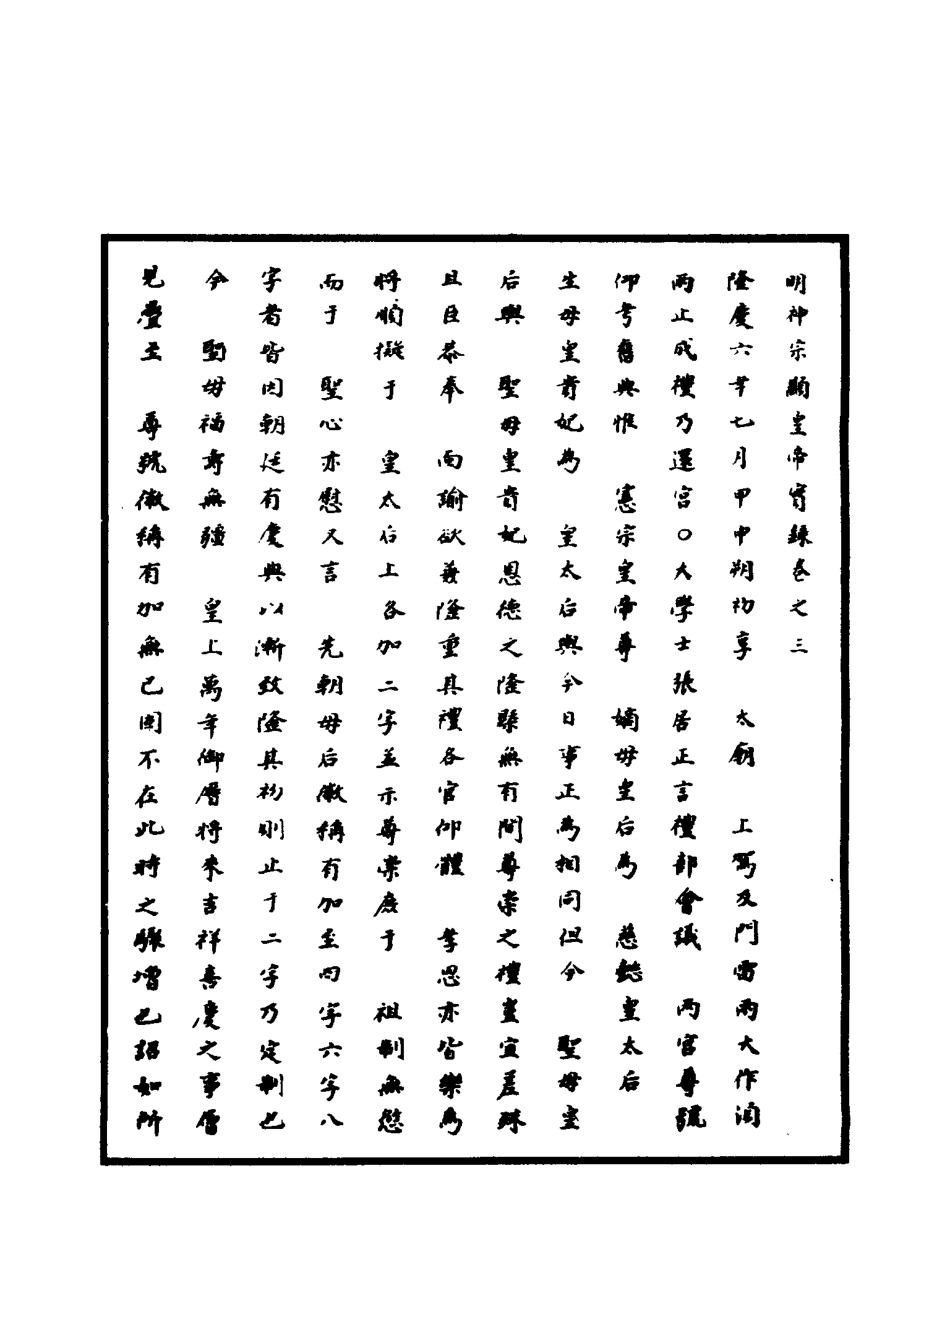 明神宗顯皇帝實錄卷之三
隆慶六年七月甲申朔初享 太廟 上駕及門雷雨大作須
兩止成禮乃還宮○大學士張居正言禮部會議 兩宮尊號
仰考舊典惟 憲宗皇帝尊 嫡母皇后為 慈懿皇太后
生母皇貴妃為 皇太后與今日事正為相同但今 聖母皇
后與 聖母皇貴妃恩德之隆縣無有間尊崇之禮豈宜差殊
且臣恭奉 面諭欲兼隆重其禮各官仰體 孝思亦皆樂為
將順擬于 皇太后上各加二字並示尊崇庶于 祖制無愆
而于 聖心亦慰又言 先朝母后徽稱有加至四字六字八
字者皆因朝廷有慶典以漸致隆其初則止于二字乃定制也
今 聖母福壽無疆 皇上萬年御曆將來吉祥喜慶之事層
見疊至 尊號徽稱有加無已固不在此時之驟增也詔如所